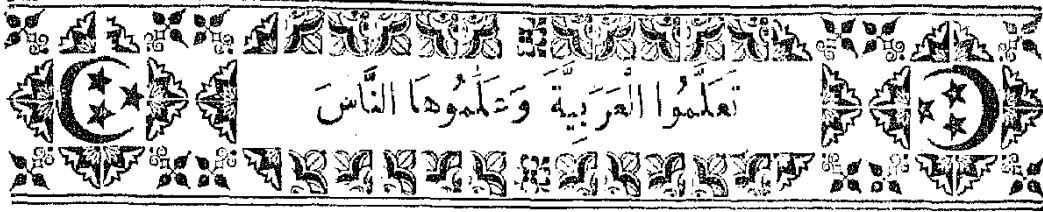 تَعَلَّمُوا الْعَرَبِيَّةَ وَعَلِّمُوهَا النَّاسَ